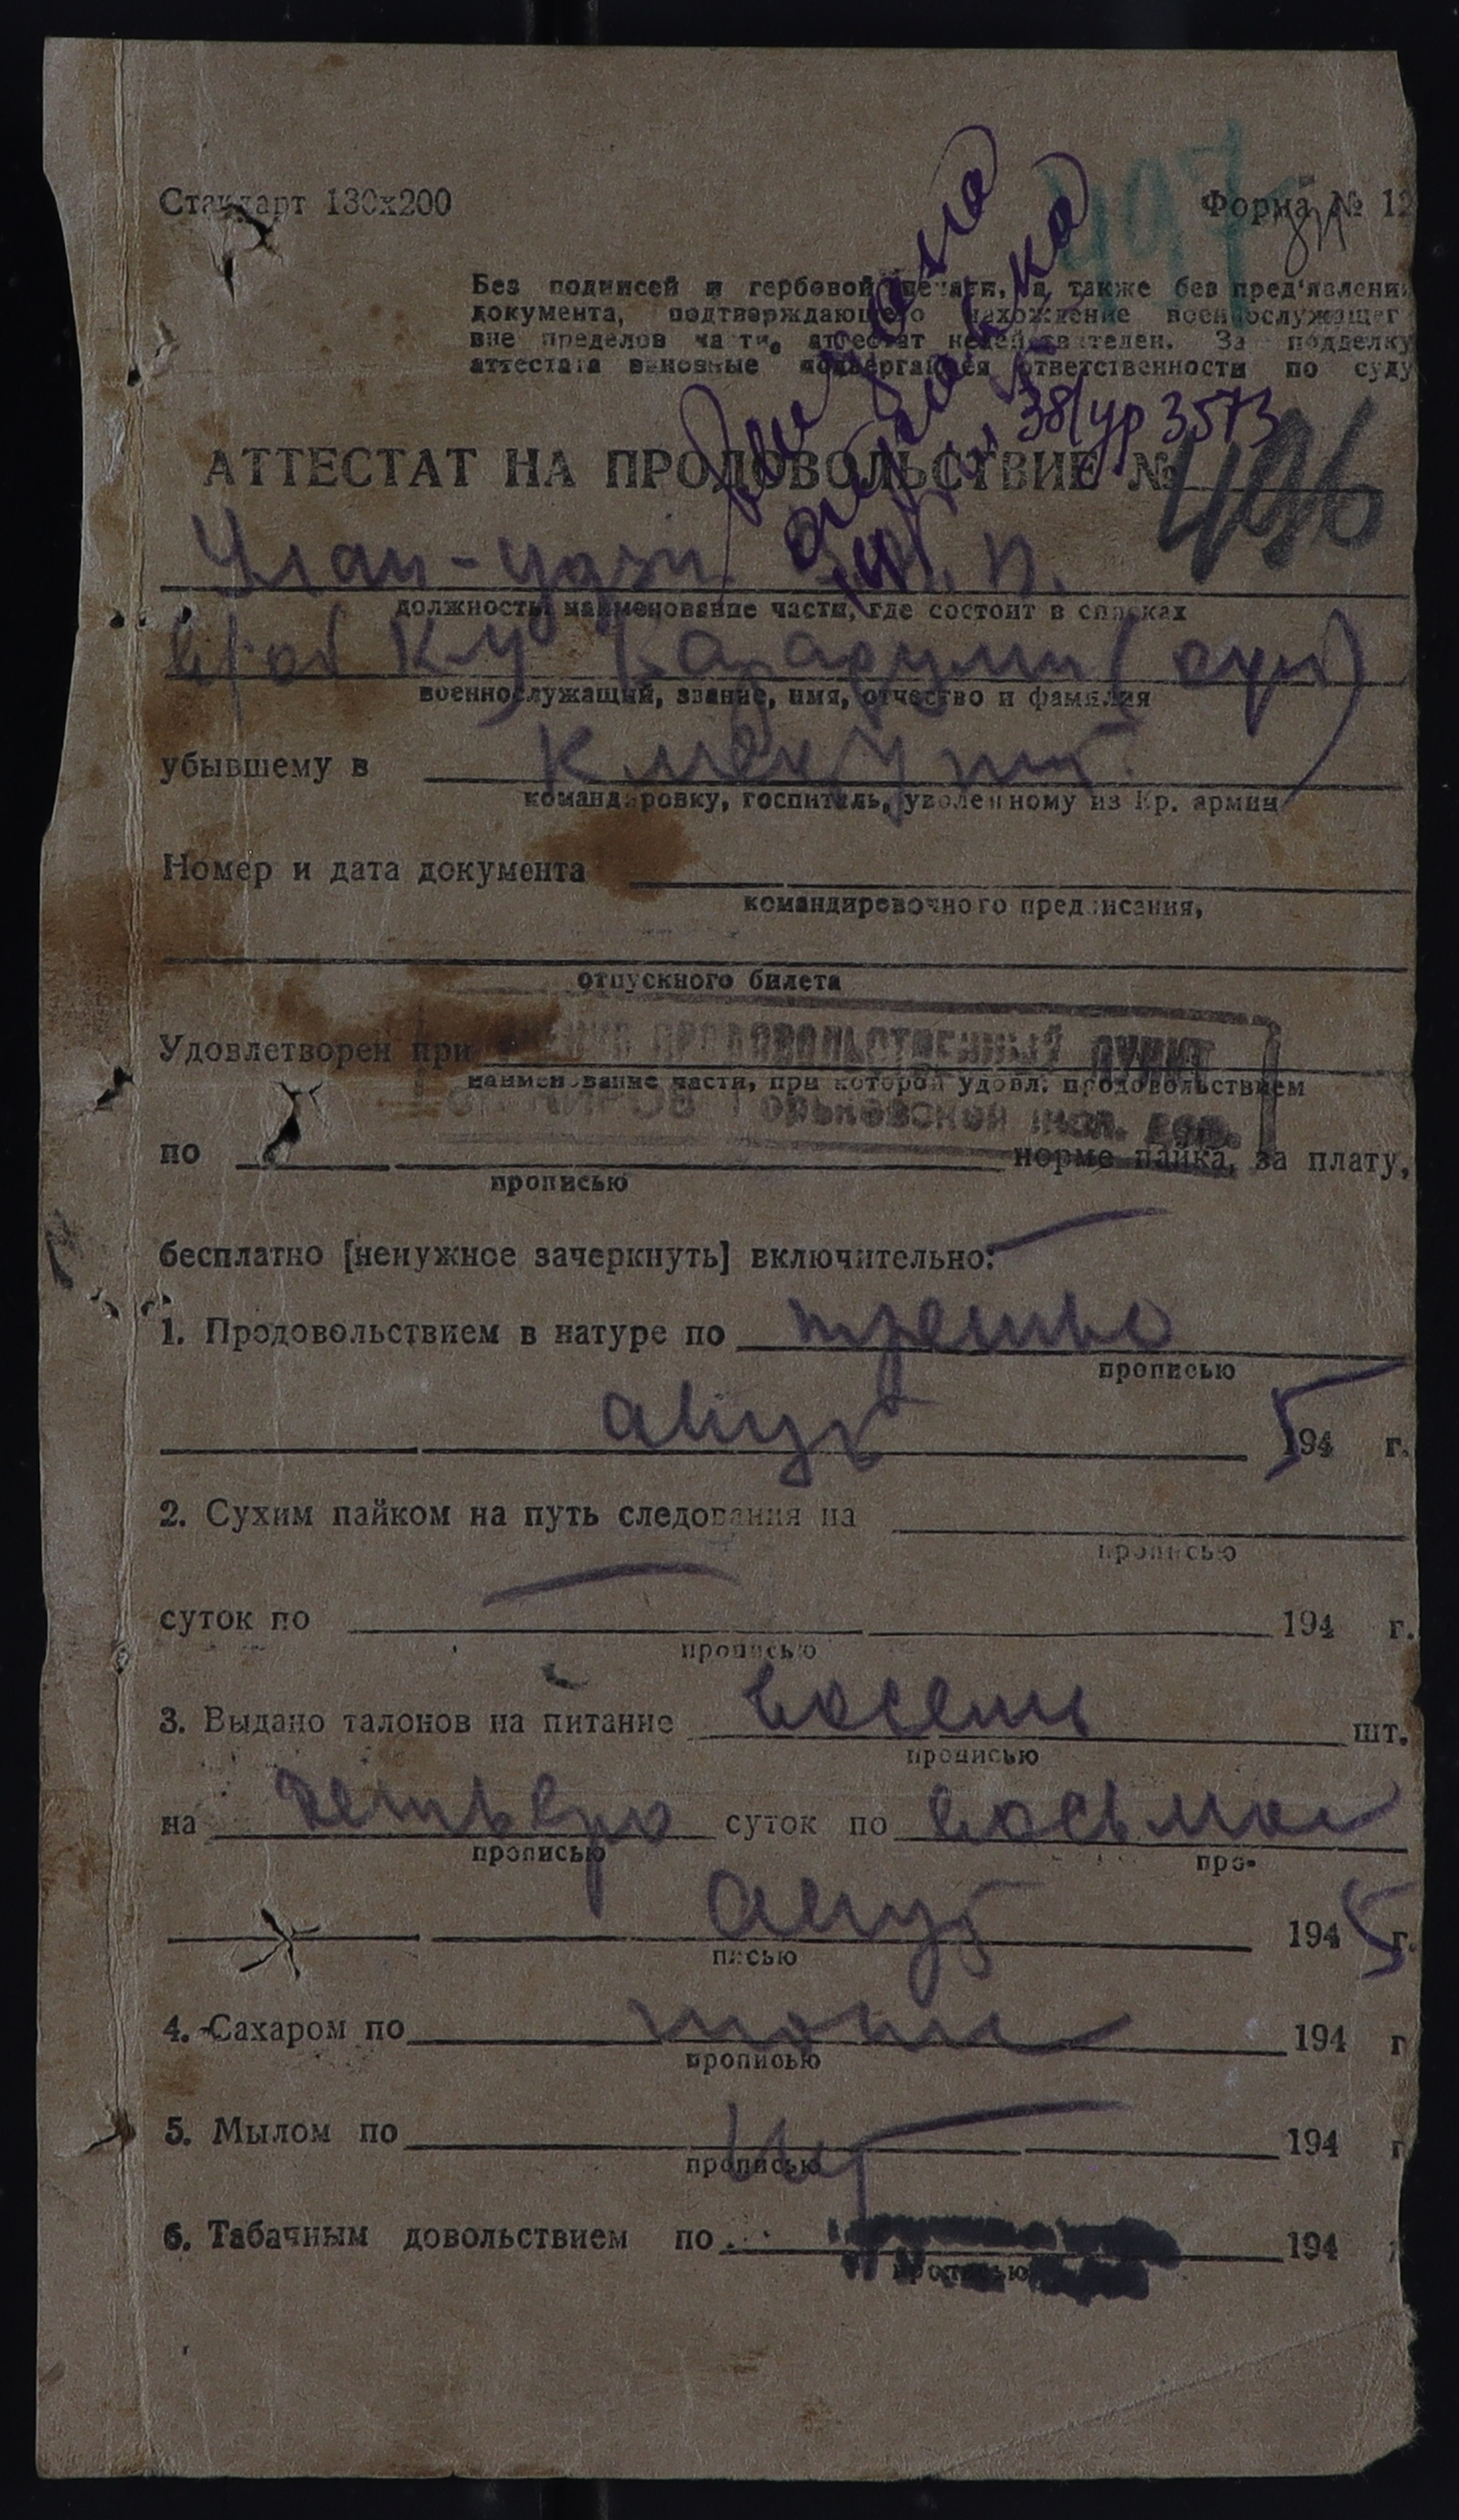 Стандарт 130х200
Форма № 12
497
Без подписей и гербовой печати, а также без пред'явления
документа, подтверждающего нахождение военнослужащег
вне пределов части, аттестат недействителен. За подделку
аттестата виновные подвергаются ответственности по суду
38/ур 3573
АТТЕСТАТ НА ПРОДОВОЛЬСТВИЕ № 496
Улан-Удэ
должность, наименование части, где состоит в списках
военнослужащий, звание, имя, отчество и фамилия
убывшему в
командировку, госпиталь, уволенному из Кр. армии
Номер и дата документа
командировочного предписания,
отпускного билета
Удовлетворен при ПРОДОВОЛЬСТВЕННЫЙ ПУНКТ
наименование части, при которой удовл. продовольствием
КИРОВ Горьковской жел. дор.
по норме пайка, за плату,
прописью
бесплатно [ненужное зачеркнуть] включительно:
1. Продовольствием в натуре по третье
прописью
август 1945 г.
2. Сухим пайком на путь следования на
прописью
суток по 194 г.
прописью
3. Выдано талонов на питание восемь шт.
прописью
на четверо суток по восьмое
прописью
про-
август 1945 г.
писью
4. Сахаром по 194 г
прописью
5. Мылом по 194 г
прописью
6. Табачным довольствием по 194
прописью